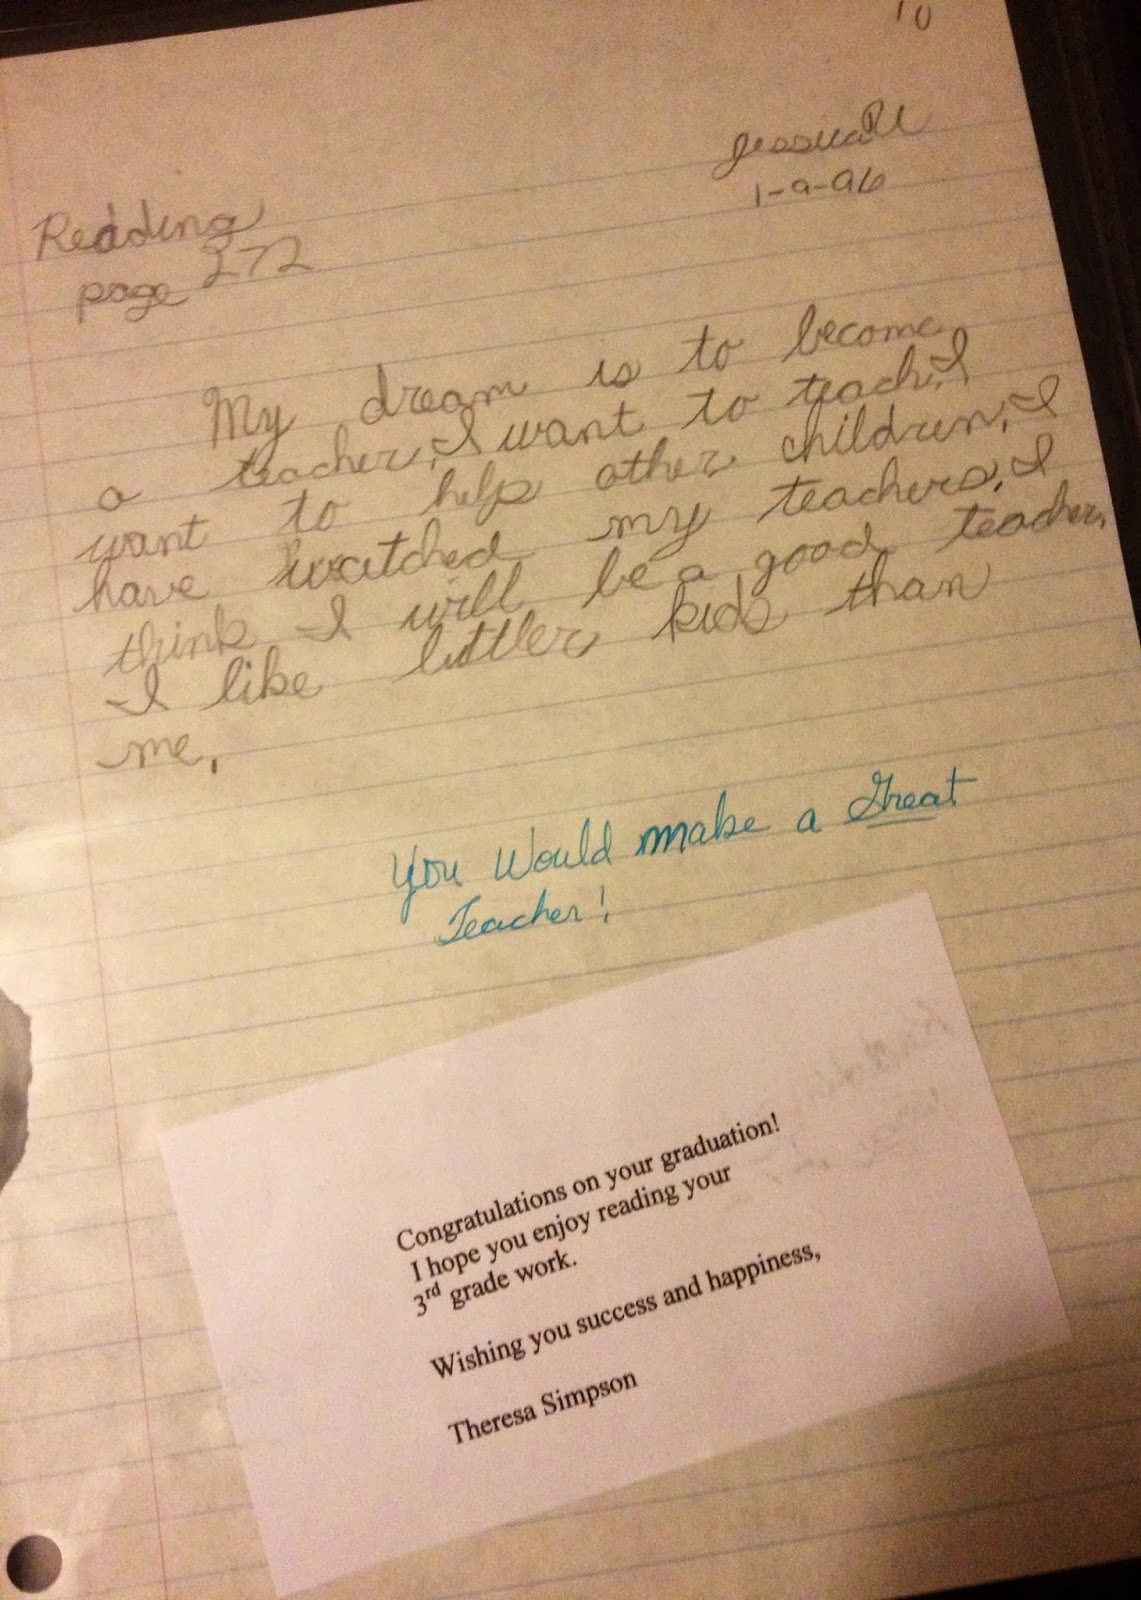 10
Jessica R
1-9-96
Reading
page 272
My dream is to become
a teacher. I want to teach. I
want to help other children. I
have watched my teachers. I
think I will be a good teacher.
I like littler kids than
me.
You Would make a Great
Teacher!
Congratulations on your graduation!
I hope you enjoy reading your
3rd grade work.
Wishing you success and happiness,
Theresa Simpson